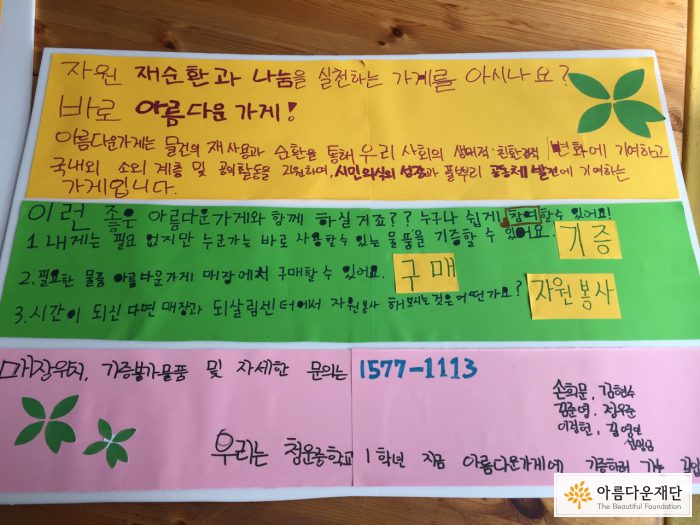 자원 재순환과 나눔을 실천하는 가게를 아시나요?
바로 아름다운 가게!
아름다운가게는 물건의 재사용과 순환을 통해 우리 사회의 생태적·친환경적 변화에 기여하고
국내외 소외 계층 및 공익활동을 지원하며, 시민의식의 성장과 풀뿌리 공동체 발전에 기여하는
가게입니다.
이런 좋은 아름다운가게와 함께 하실거죠?? 누구나 쉽게 참여할수 있어요!
1. 내게는 필요 없지만 누군가는 바로 사용할수 있는 물품을 기증할 수 있어요. 기증
2. 필요한 물품 아름다운가게 매장에서 구매할 수 있어요. 구매
3. 시간이 되신다면 매장과 되살림센터에서 자원봉사 해보시는것은 어떤가요? 자원봉사
매장위치, 기증불가물품 및 자세한 문의는 1577-1113
손희문, 김현수
김준영, 정우준
우리는 청운중학교 1학년 지금 아름다운가게에 기증하러 가는
아름다운재단
The Beautiful Foundation